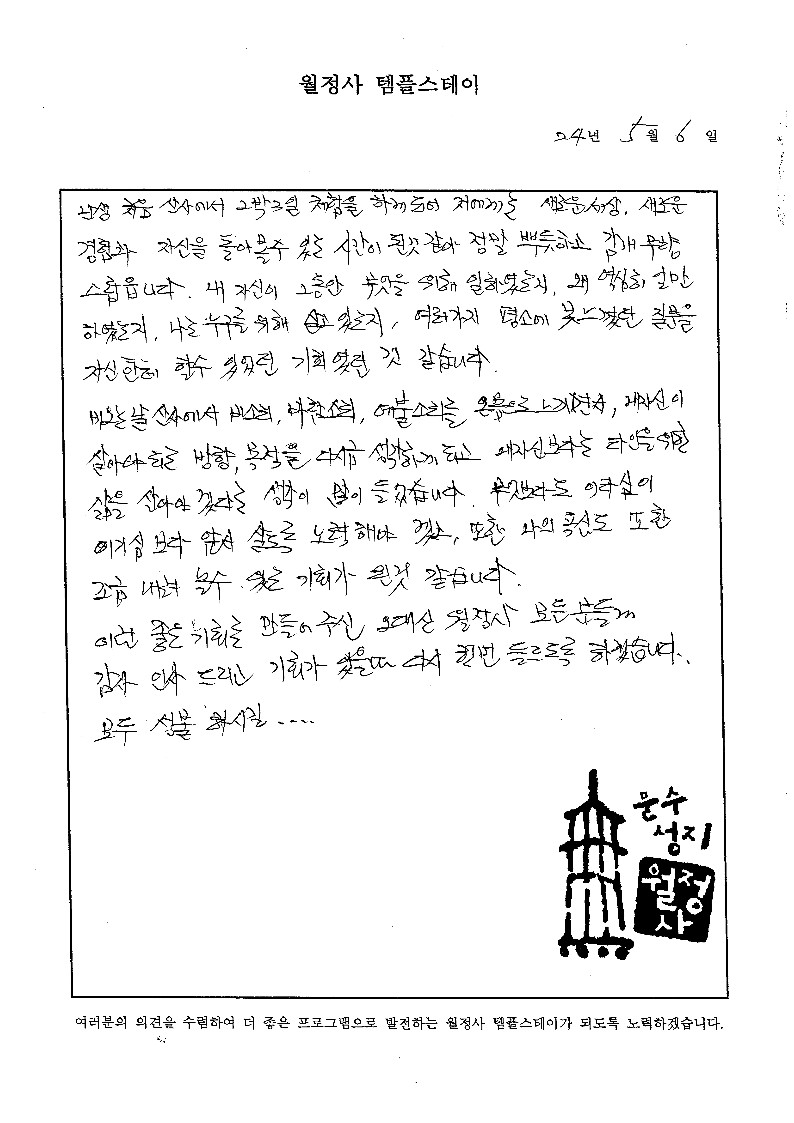 월정사 템플스테이
24년 5월 6일
난생 처음 산사에서 2박3일 체험을 하게되어 저에게는 새로운세상, 새로운
경험과 자신을 돌아볼수 있는 시간이 된것 같아 정말 뿌듯하고 감개무량
스럽읍니다. 내 자신이 그동안 무엇을 위해 일하였는지, 왜 열심히 일만
하였는지, 나는 누구를 위해 살고 있는지, 여러가지 평소에 못느꼈던 질문을
자신한테 할수 있었던 기회였던 것 같습니다.
비오는날 산사에서 빗소리, 바람소리, 예불소리를 온몸으로 느끼면서, 내자신이
살아야 되는 방향, 목적을 다시금 생각하게 되고 내자신보다는 타인을 위한
삶을 살아야 겠다는 생각이 많이 들었습니다. 무엇보다도 이타심이
이기심 보다 앞서 살도록 노력해야 겠고, 또한 나의 욕심도 또한
조금 내려 놀수 있는 기회가 된것 같습니다.
이런 좋은 기회를 만들어 주신 오대산 월정사 모든 분들께
감사 인사 드리고 기회가 있을때 다시 한번 들르도록 하겠습니다.
모두 성불 하시길 ....
문수
성지
월정
사
여러분의 의견을 수렴하여 더 좋은 프로그램으로 발전하는 월정사 템플스테이가 되도록 노력하겠습니다.